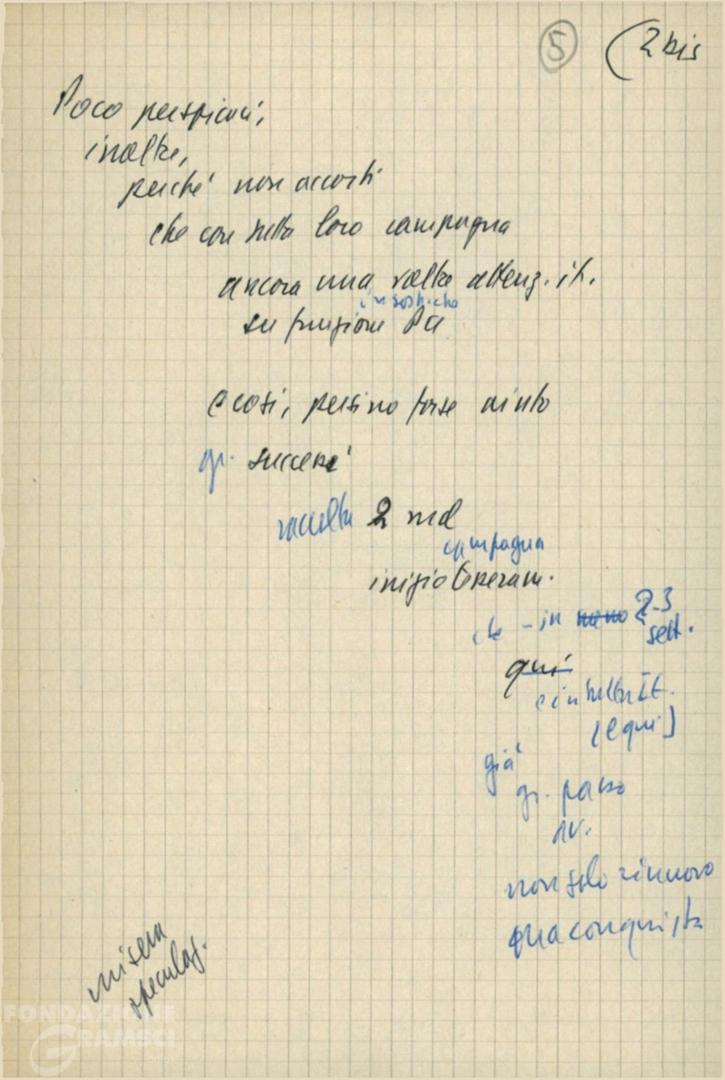 5 (2 bis
Poco perspicaci,
inoltre,
perché non accorti
che con tutta loro campagna
ancora una volta attenz. it.
insostit.
su funzione Pci
e così, persino forse aiuto
gr. successi
raccolta 2 md
campagna
inizio tesseram.
che - in meno 2-3
sett.
qui
e in tutta It.
[e qui]
già
gr. passo
av.
non solo rinnovo
ma conquista
misera
speculaz.
FONDAZIONE
GRAMSCI